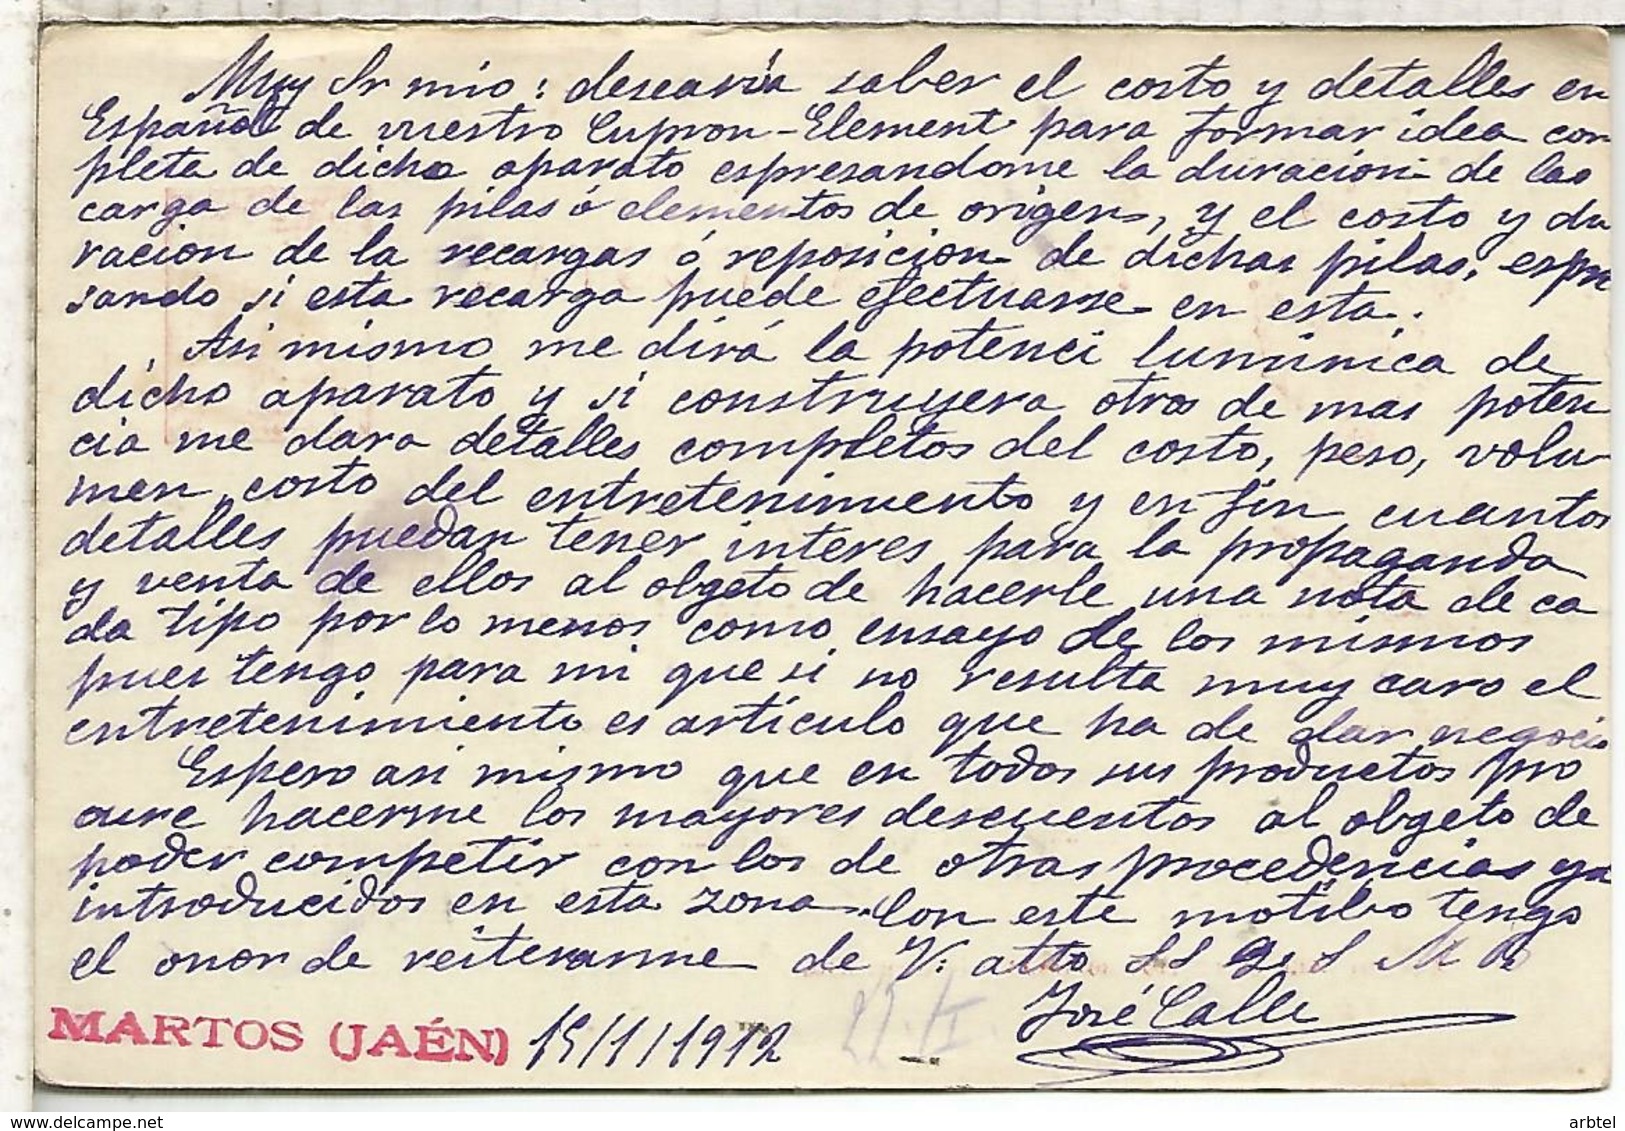 Muy Sr mio: desearia saber el costo y detalles en
Español de vuestro Cupron-Element para formar idea com
pleta de dicho aparato espresandome la duracion de las
carga de las pilas ó elementos de origen, y el costo y du
racion de la recargas ó reposicion de dichas pilas, espre
sando si esta recarga puede efectuarse en esta.
Asi mismo me dirá la potenci luminica de
dicho aparato y si construyera otros de mas poten
cia me dara detalles completos del costo, peso, volu
men, costo del entretenimiento y en fin cuantos
detalles puedan tener interes para la propaganda
y venta de ellos al obgeto de hacerle una nota de ca
da tipo por lo menos como ensayo de los mismos
pues tengo para mi que si no resulta muy caro el
entretenimiento es articulo que ha de dar negocio
Espero asi mismo que en todos sus productos pro
cure hacerme los mayores descuentos al obgeto de
poder competir con los de otras procedencias ya
introducidos en esta zona. Con este motibo tengo
el onor de reiterarme de V. atto SS Q. S M B
José Calle
MARTOS (JAÉN) 15/1/1912
arbtel